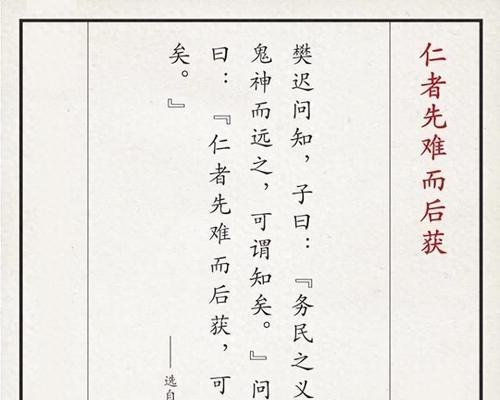 仁者先难而后获
樊迟问知，子曰：『务民之义
鬼神而远之，可谓知矣。』问
曰：『仁者先难而后获，可
矣。』
——选自